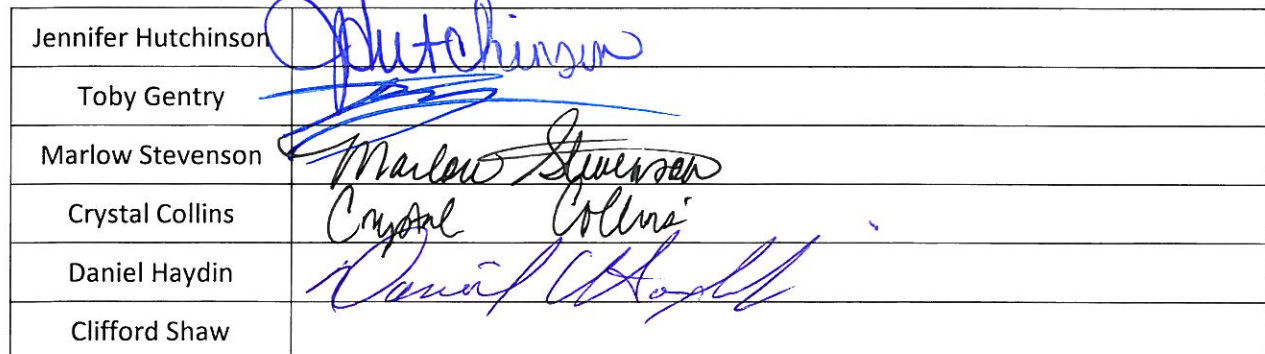 Jennifer Hutchinson JHutchinson
Toby Gentry
Marlow Stevenson Marlow Stevenson
Crystal Collins Crystal Collins
Daniel Haydin Daniel
Clifford Shaw